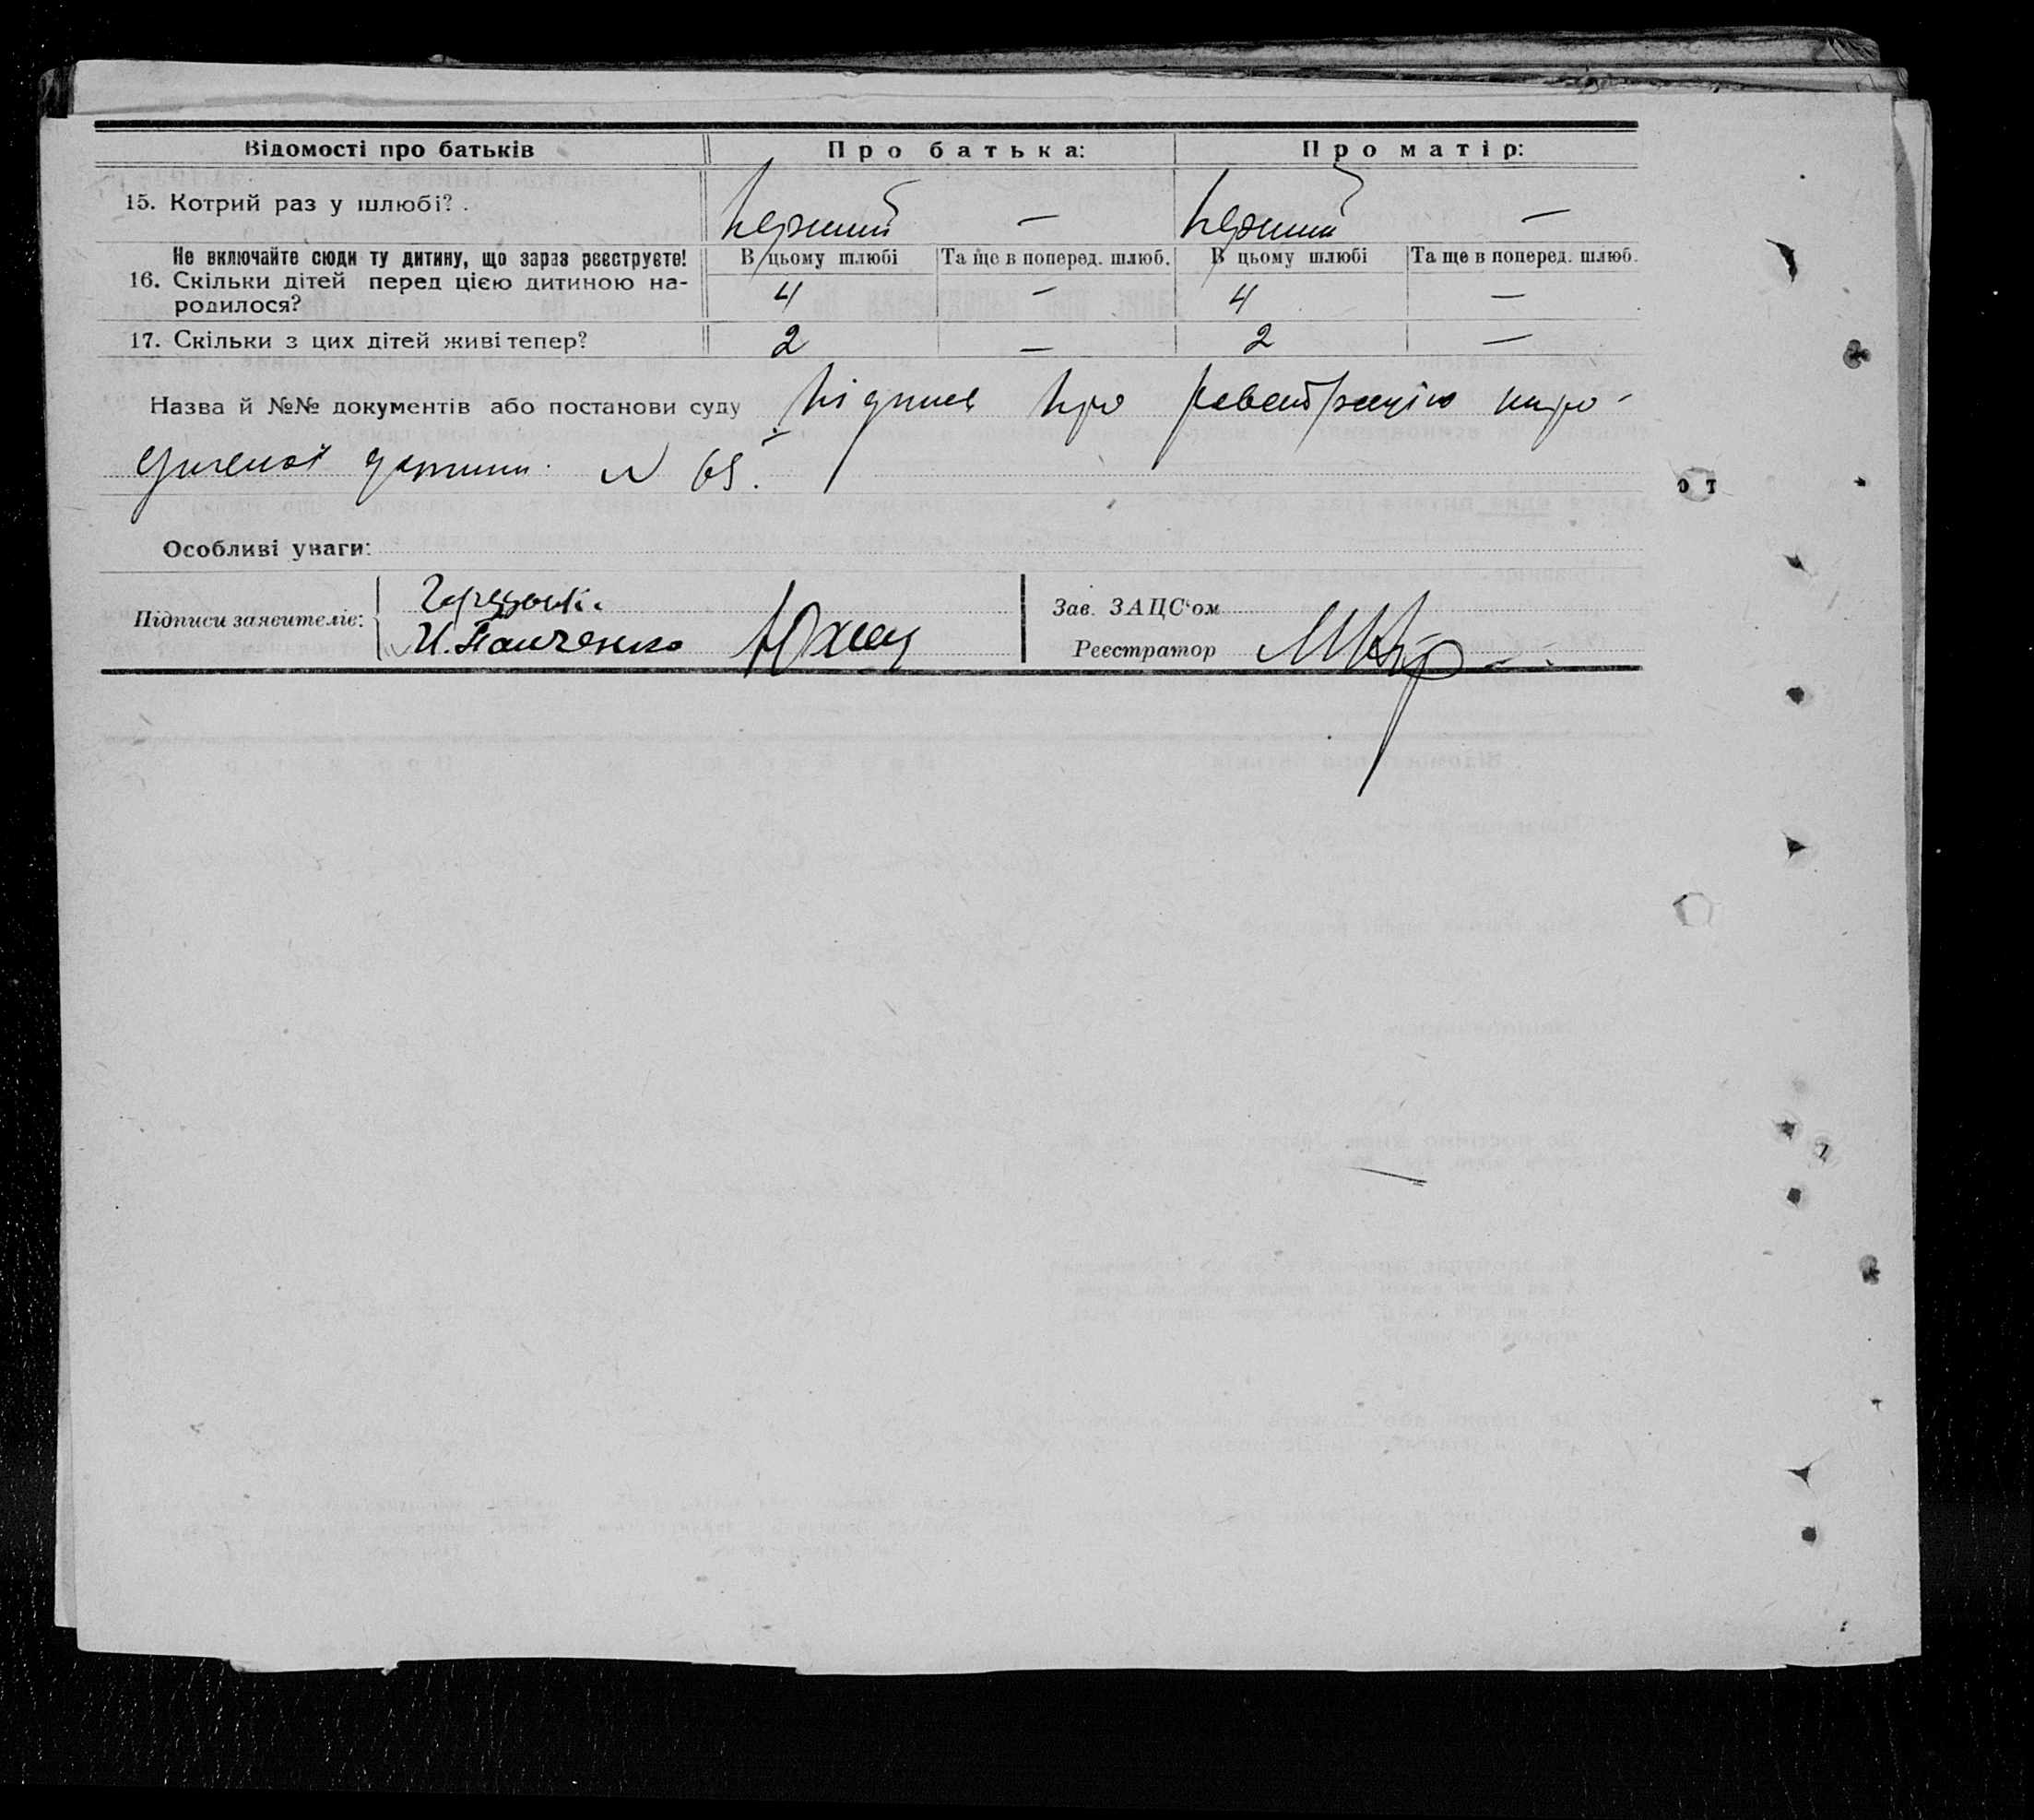 Відомості про батьків Про батька: Про матір:
15. Котрий раз у шлюбі? . перший — перший —
Не включайте сюди ту дитину, що зараз реєструєте! В цьому шлюбі Та ще в поперед. шлюб. В цьому шлюбі Та ще в поперед. шлюб.
16. Скільки дітей перед цією дитиною на-
родилося? 4 — 4 —
17. Скільки з цих дітей живі тепер? 2 — 2 —
Назва й №№ документів або постанови суду про
дитини N 69.
от
Особливі уваги:
Підписи заявителів: И. Панченко
Зав. ЗАЦС'ом
Реєстратор